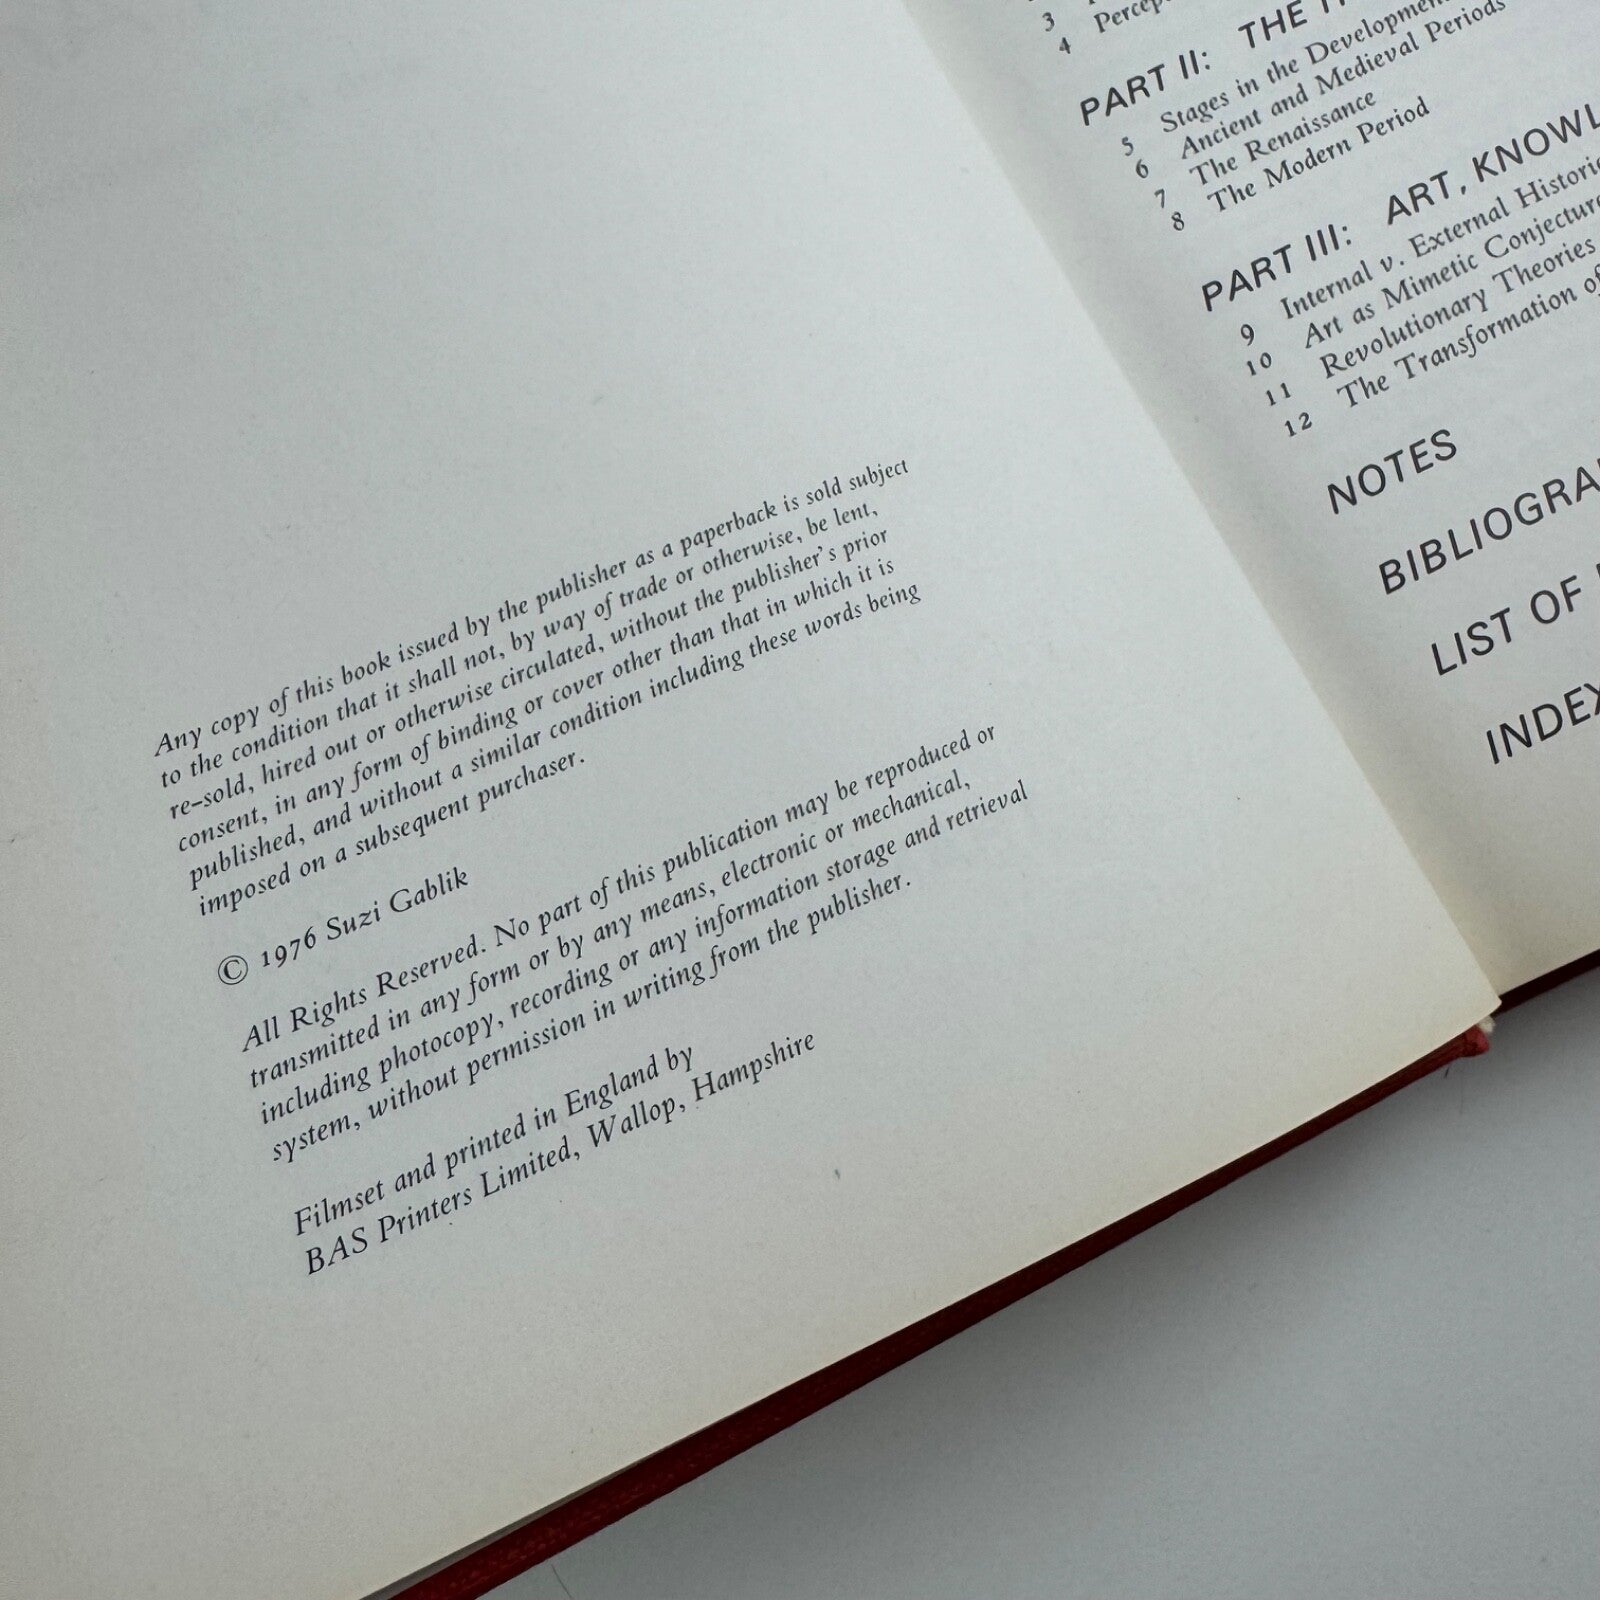 Any copy of this book issued by the publisher as a paperback is sold subject
to the condition that it shall not, by way of trade or otherwise, be lent,
re-sold, hired out or otherwise circulated, without the publisher's prior
consent, in any form of binding or cover other than that in which it is
published, and without a similar condition including these words being
imposed on a subsequent purchaser.
© 1976 Suzi Gablik
All Rights Reserved. No part of this publication may be reproduced or
transmitted in any form or by any means, electronic or mechanical,
including photocopy, recording or any information storage and retrieval
system, without permission in writing from the publisher.
Filmset and printed in England by
BAS Printers Limited, Wallop, Hampshire
3
4
PART II: THE
5 Stages in the
6 Ancient and Medieval Periods
7 The Renaissance
8 The Modern Period
PART III: ART,
9 Internal v. External
10 Art as Mimetic
11 Revolutionary Theories
12 The Transformation of
NOTES
LIST OF
INDEX